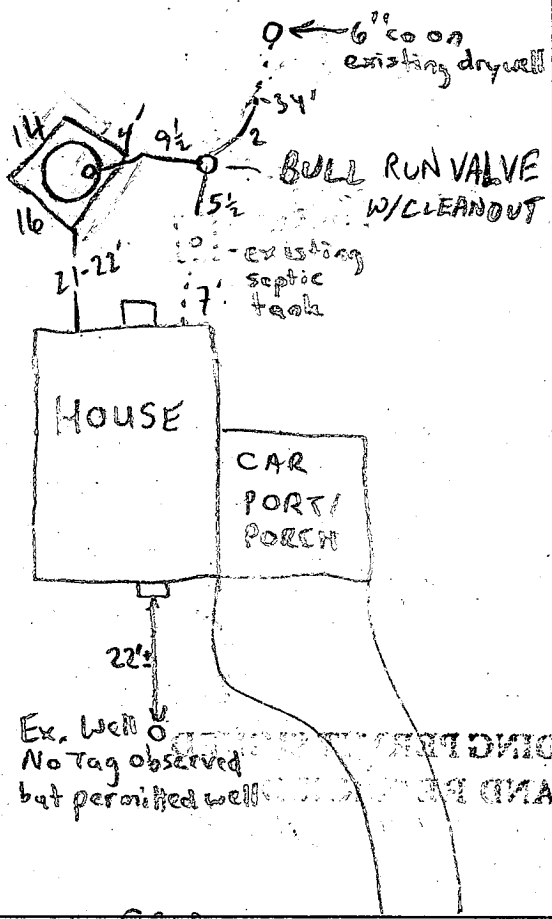 6" co on
existing drywell
34'
2
14
4'
9½
BULL RUN VALVE
W/CLEANOUT
16
5½
existing
septic
tank
21-22'
7'
HOUSE
CAR
PORT/
PORCH
22'±
Ex. Well
No Tag observed
but permitted well